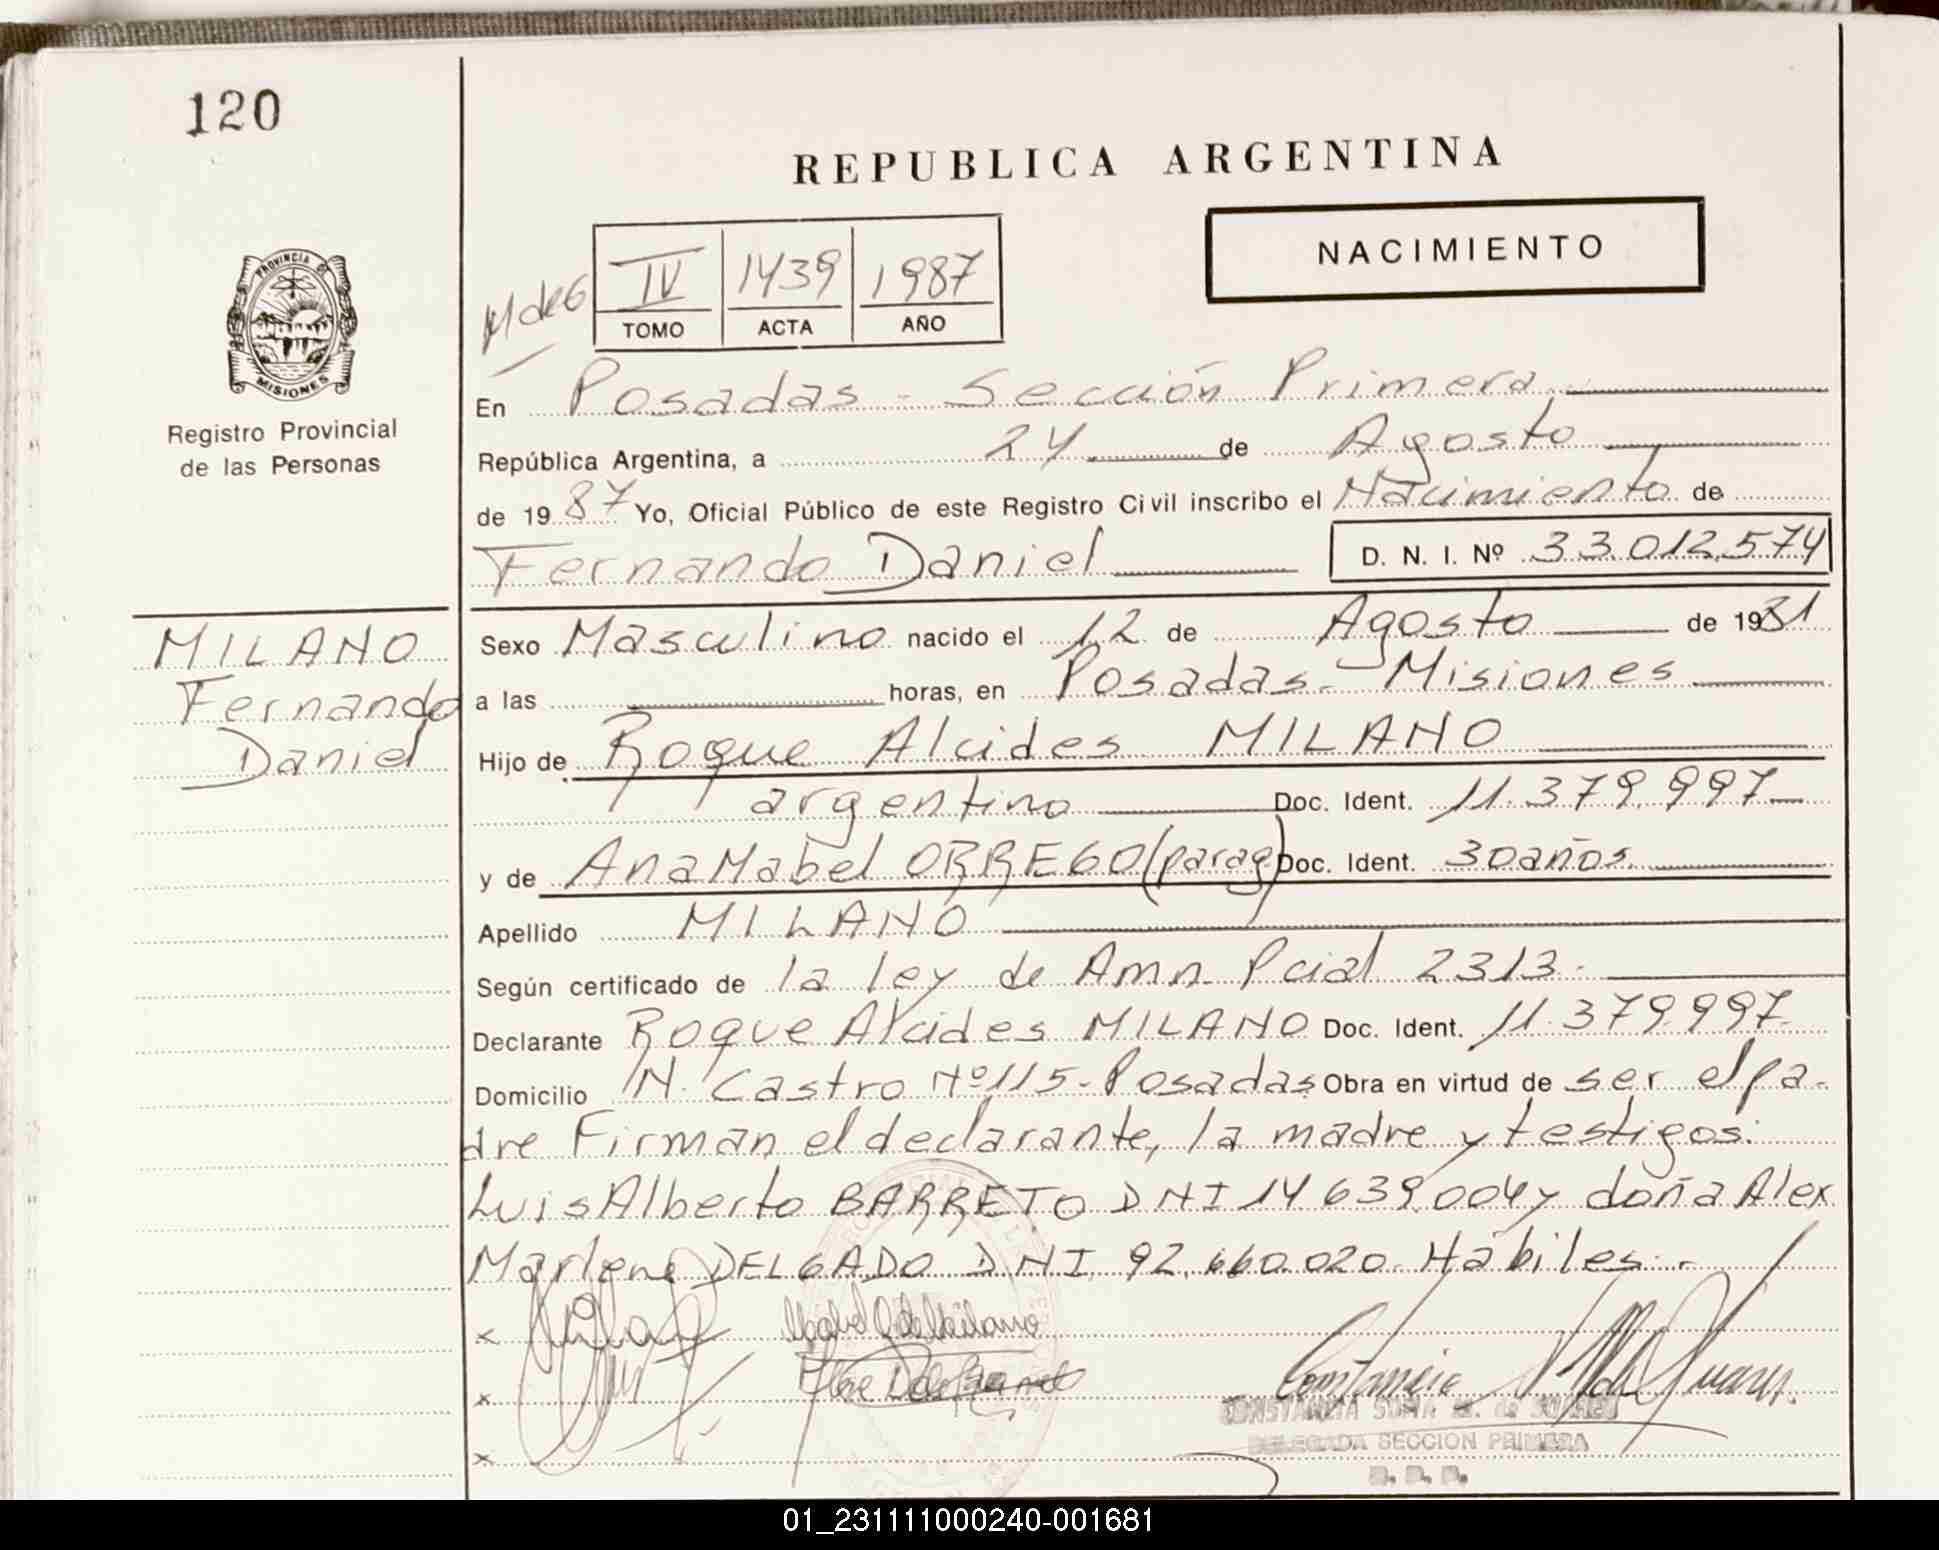 120
REPUBLICA ARGENTINA
NACIMIENTO
PROVINCIA DE
MISIONES
Registro Provincial
de las Personas
IV 1439 1987
TOMO ACTA AÑO
En Posadas - Sección Primera
República Argentina, a 24 de Agosto
de 1987 Yo, Oficial Público de este Registro Civil inscribo el Nacimiento de
Fernando Daniel D. N. I. Nº 33.012.574
MILANO
Fernando
Daniel
Sexo Masculino nacido el 12 de Agosto de 1981
a las horas, en Posadas - Misiones
Hijo de Roque Alcides MILANO
argentino Doc. Ident. 11.379.997
y de Ana Mabel ORREGO (parag) Doc. Ident. 30 años.
Apellido MILANO
Según certificado de la ley de Amn. Pcial 2313.
Declarante Roque Alcides MILANO Doc. Ident. 11.379.997
Domicilio N. Castro Nº 115 - Posadas Obra en virtud de ser el pa-
dre Firman el declarante, la madre y testigos:
Luis Alberto BARRETO DNI 14.639.004 y doña Alex
Marlene DELGADO DNI 92.660.020. Hábiles.-
x
x
x
DELEGADA SECCION PRIMERA
01_231111000240-001681